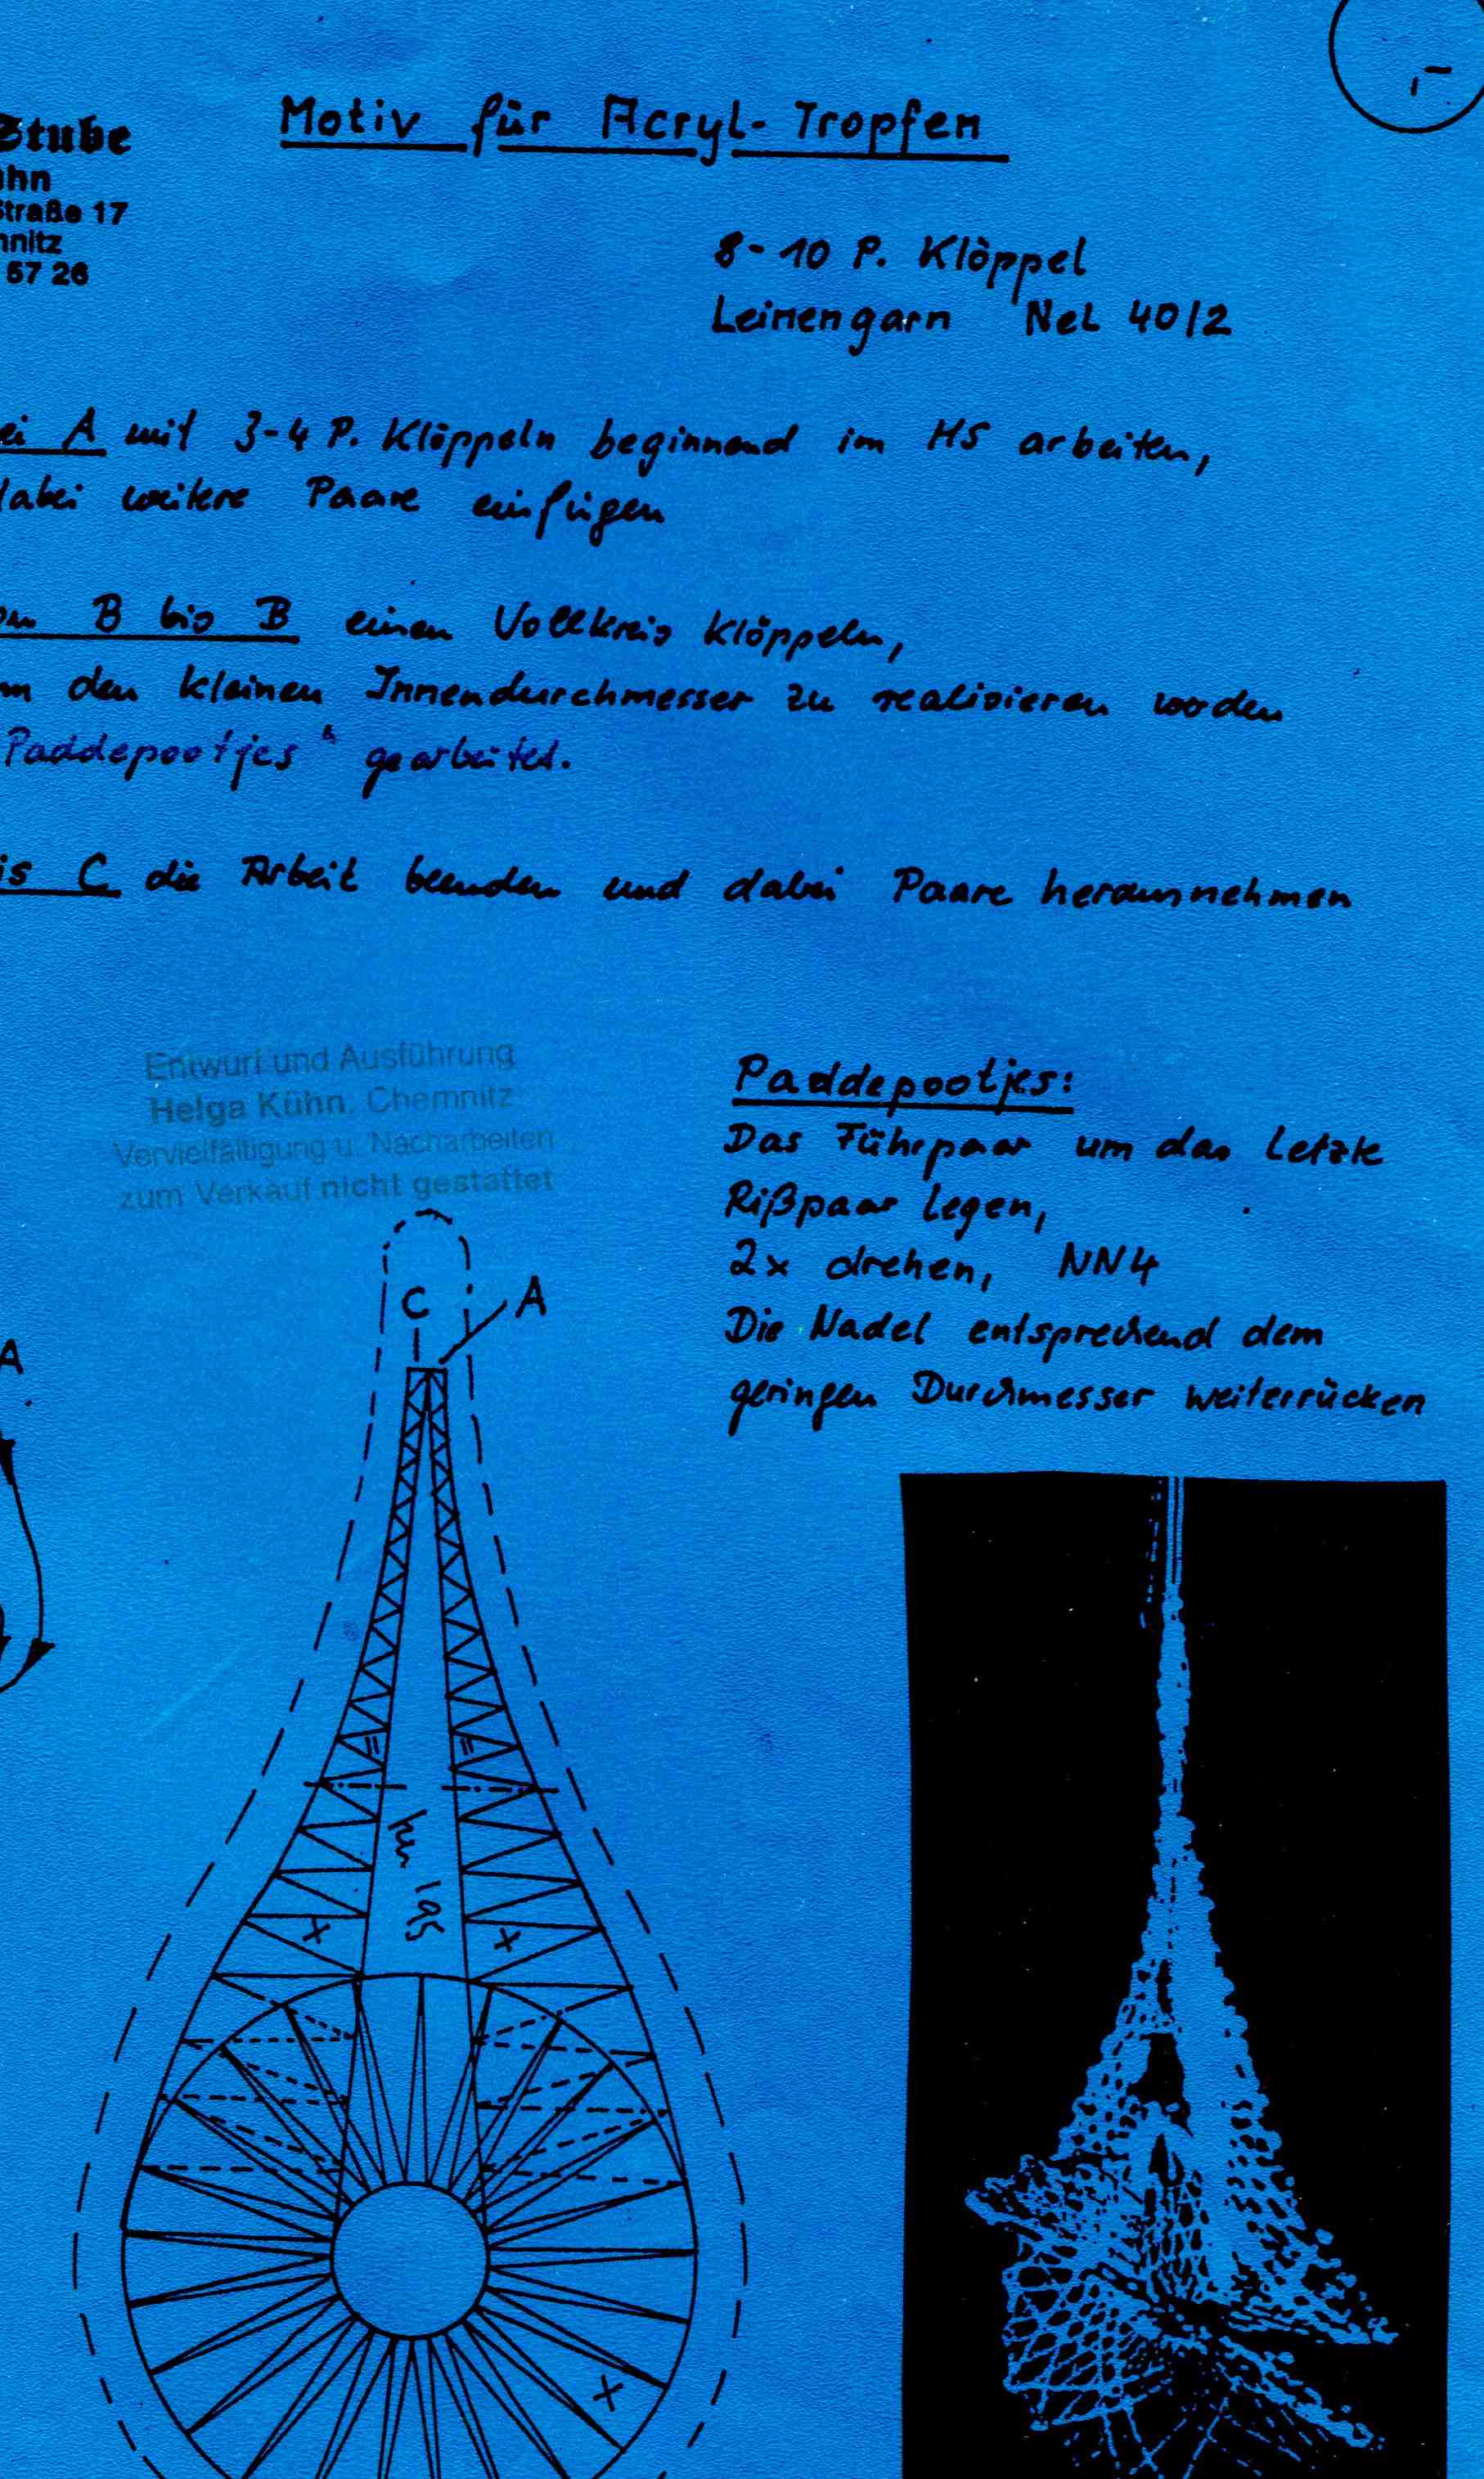 Stube
ühn
Straße 17
nnitz
57 26
Motiv für Acryl-Tropfen
8-10 P. Klöppel
Leinengarn NeL 40/2
ei A mit 3-4 P. Klöppeln beginnend im HS arbeiten,
dabei weitere Paare einfügen
on B bis B einen Vollkreis klöppeln,
m den kleinen Innendurchmesser zu realisieren werden
Paddepootjes" gearbeitet.
is C die Arbeit beenden und dabei Paare herausnehmen
Entwurf und Ausführung
Helga Kühn, Chemnitz
Vervielfältigung u. Nacharbeiten
zum Verkauf nicht gestattet
Paddepootjes:
Das Führpaar um das letzte
Rißpaar legen,
2x drehen, NN4
Die Nadel entsprechend dem
geringen Durchmesser weiterrücken
C
A
A
195